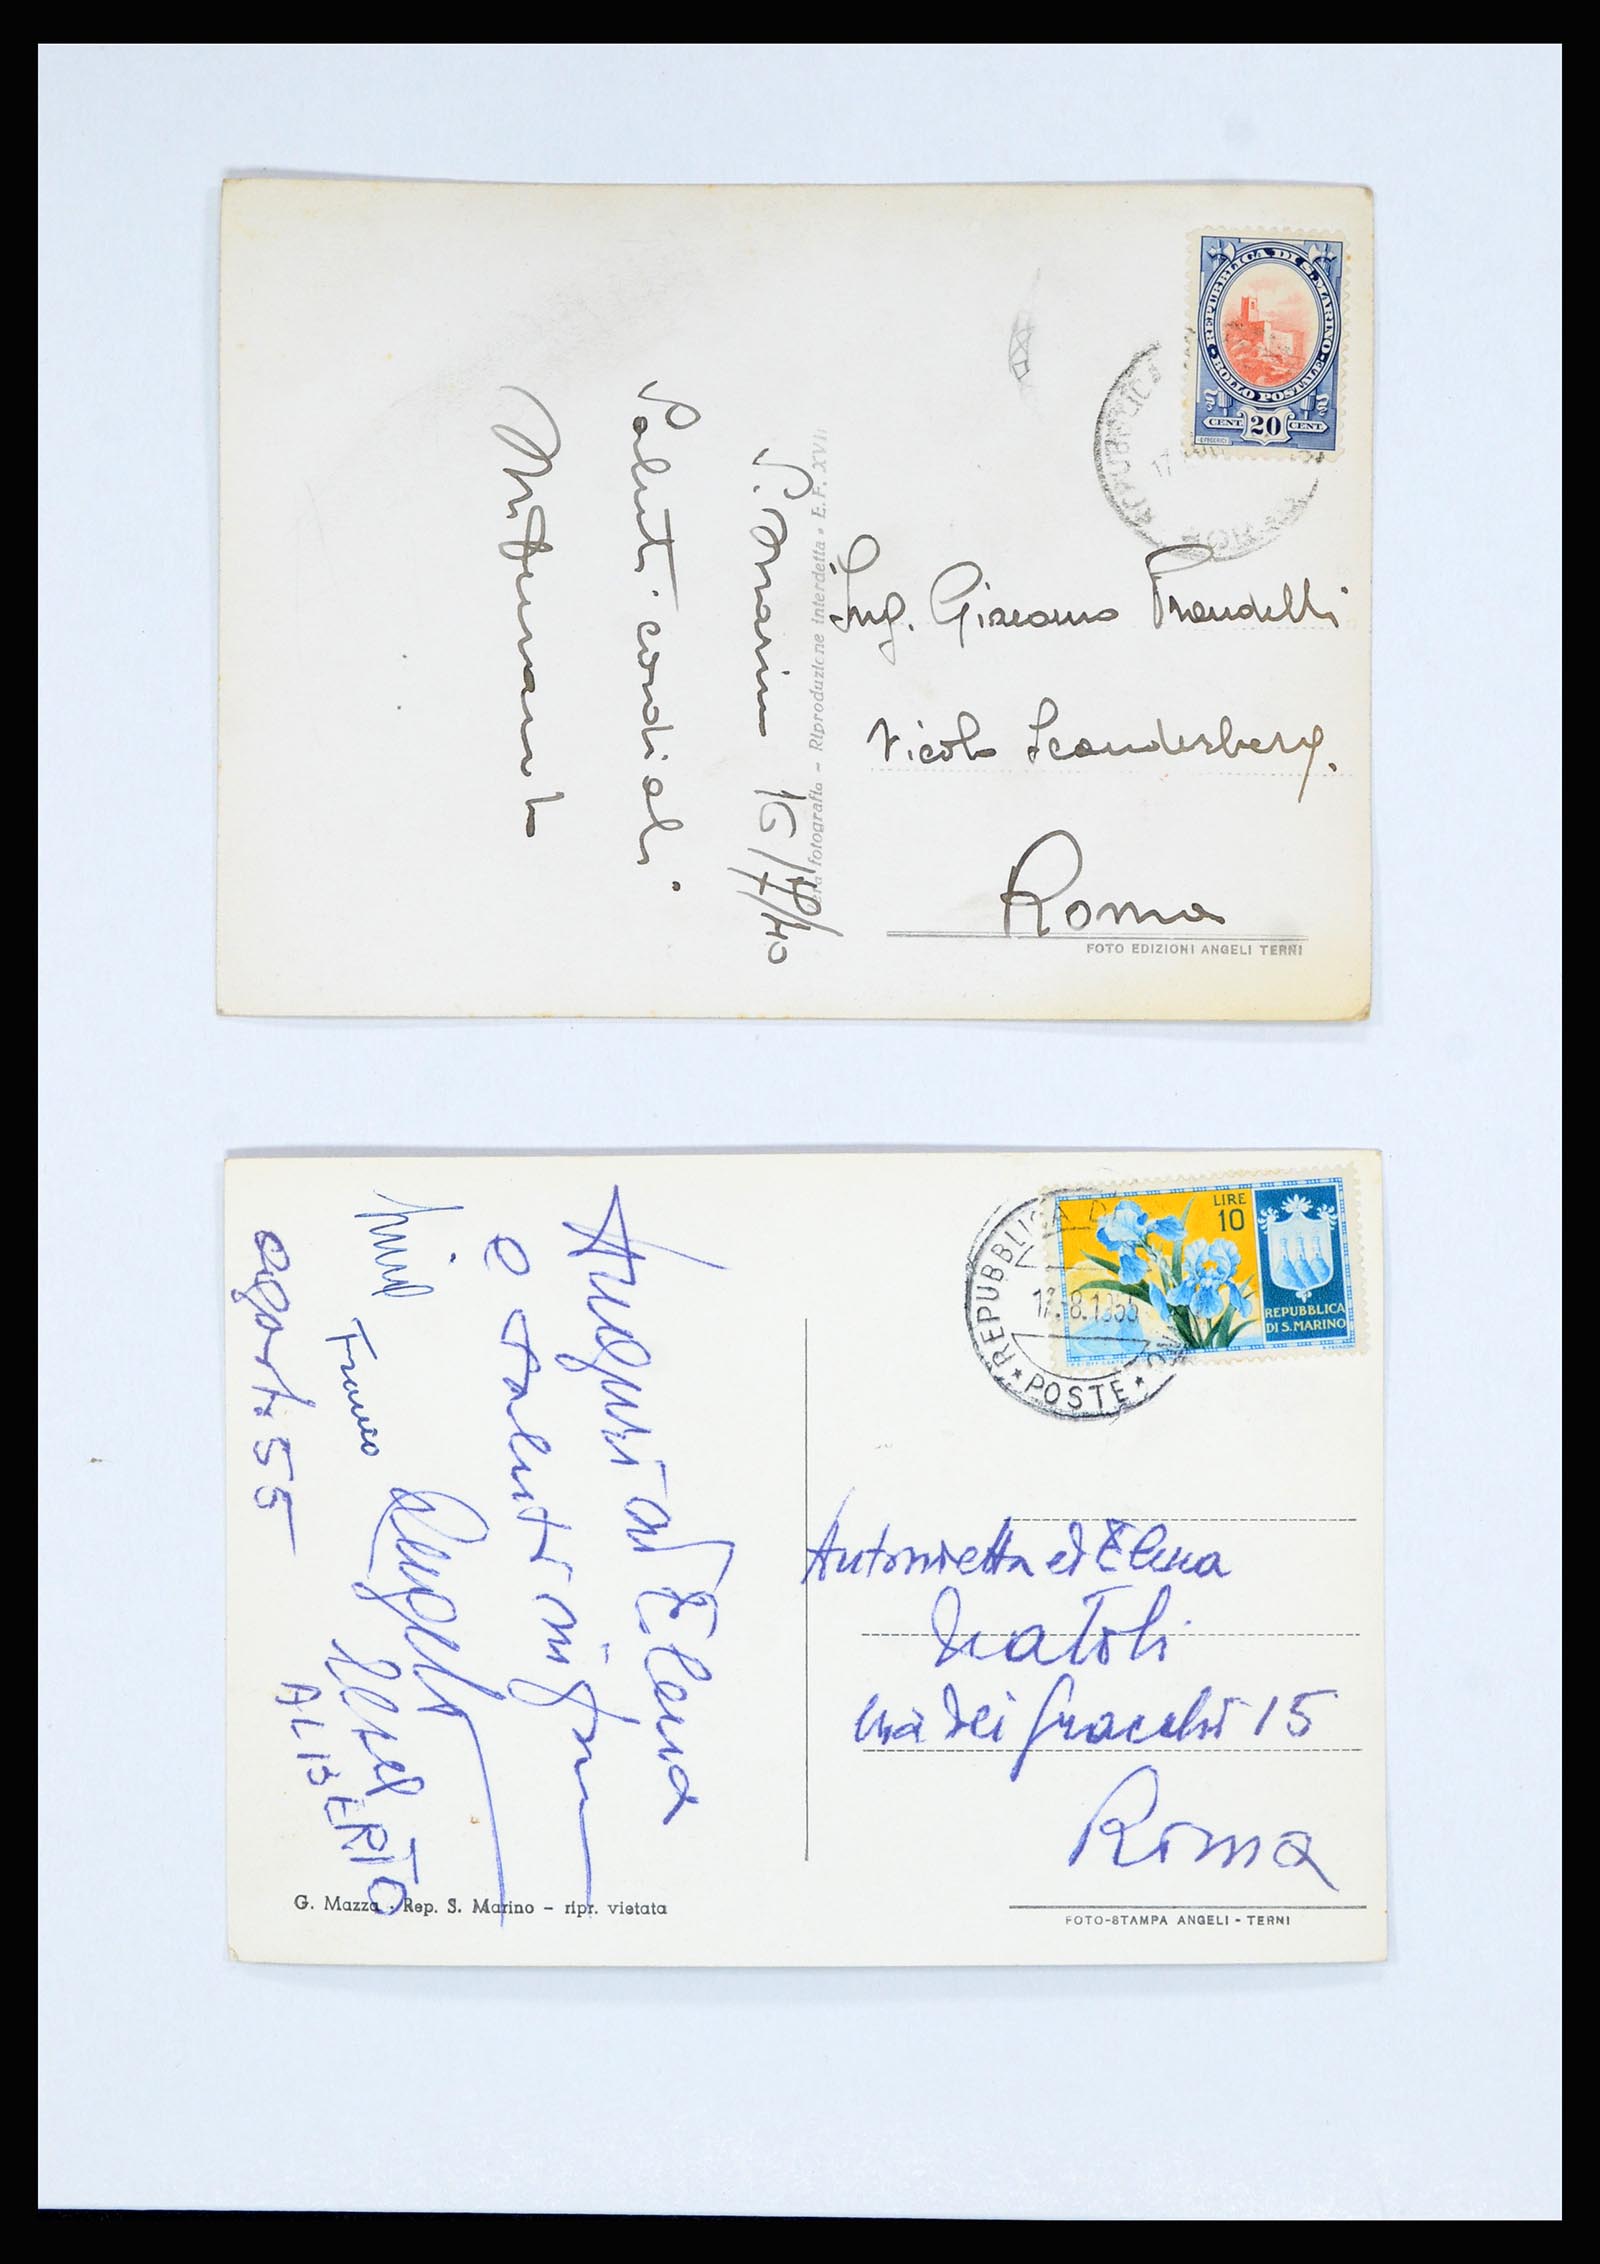 REPUBBLICA DI S. MARINO
BOLLO POSTALE
CENT. 20 CENT.
REPUBBLICA
17
S. Marino 16/7/40
Saluti cordiali
vera fotografia - Riproduzione interdetta • E. F. XVII
Ing. Giacomo Prandelli
Vicolo Scanderberg.
Roma
FOTO EDIZIONI ANGELI TERNI
LIRE
10
REPUBBLICA
DI S. MARINO
REPUBBLICA DI
8.1955
POSTE
Auguri ad Elena
e saluti
Franco
ALBERTO
agosto 55
Antonietta ed Elena
Natoli
Via dei Gracchi 15
Roma
G. Mazza · Rep. S. Marino - ripr. vietata
FOTO-STAMPA ANGELI - TERNI